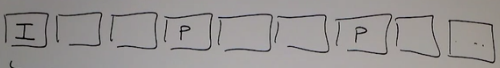 I P P ...